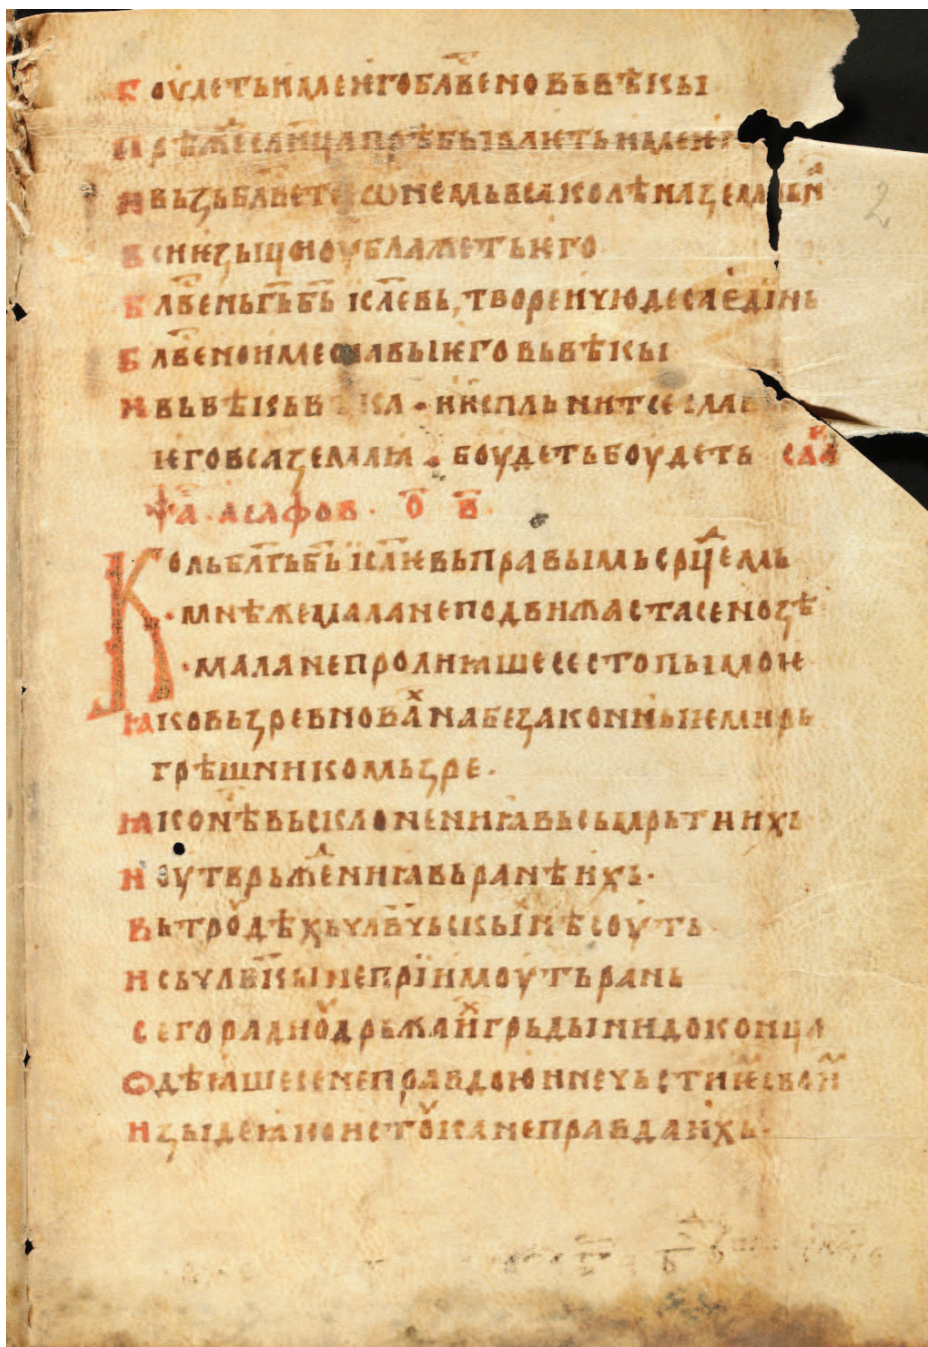 Боудеть имеѥго блв҃ено вь вѣкы
Прѣжⷣе слн҃ца прѣбываѥть име ѥг
И вьзьблв҃ете ѡ немь вса колѣна земльнⷩ
Вси ѥзыци оублажеть ѥго
Блв҃ень гь҃ бь҃ ісл҃евь, твореи чюдеса едінь
Блв҃ено име славы ѥго вь вѣкы
И вь вѣкь вѣка · и испльнит се слав
ѥго вса землꙗ · боудеть боудеть слаⷡ
ѱа҃ асафов · о҃ в҃
Коль бл҃гь бь҃ ісл҃ѥвь правымь срⷣцемь
· мнѣ же мала не подвижаста се нозѣ
· мала не пролиꙗше се стопы моѥ
ꙗко вьзревновахⷯ на безаконныѥ мирь
грѣшникомь зре ·
ꙗко нѣ вьсклонениꙗ вь сьмрьти ихь
И оутврьжⷣениꙗ вь ранѣ ихь ·
Вь троудѣхь чл҃вчьскы нѣсоуть
И сь чл҃вкы не прїимоуть рань
Сего ради ѡдрьжа ихⷯ грьдыни до конца
Ѡдѣꙗше се неправдою и нечьстиѥмⷨ своимⷨ
Изыде ꙗко ис тоука неправда ихь ·